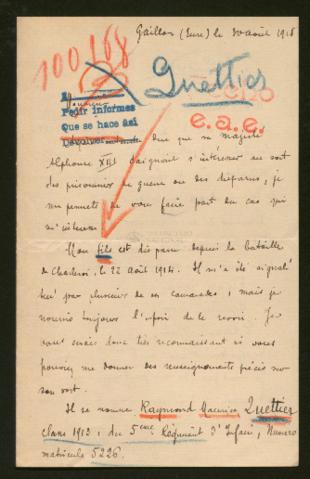 Gaillon (Eure) le 30 août 1918
100168
Quettier
Hecho
e.a.e.
Monsieur
Pedir informes
Que se hace así
que sa majesté
Alphonse XIII daignait s'intéresser au sort
des prisonniers de guerre ou des disparus, je
me permets de vous faire part du cas qui
m'intéresse
Mon fils est disparu depuis la bataille
de Charleroi, le 22 août 1914. Il m'a été signalé
tué par plusieurs de ses camarades ; mais je
nourris toujours l'espoir de le revoir. Je
vous serais donc très reconnaissant si vous
pouviez me donner des renseignements précis sur
son sort.
Il se nomme Raymond Maurice Quettier
classe 1913, du 5eme Régiment d'Infanie, Numero
matricule 5226.